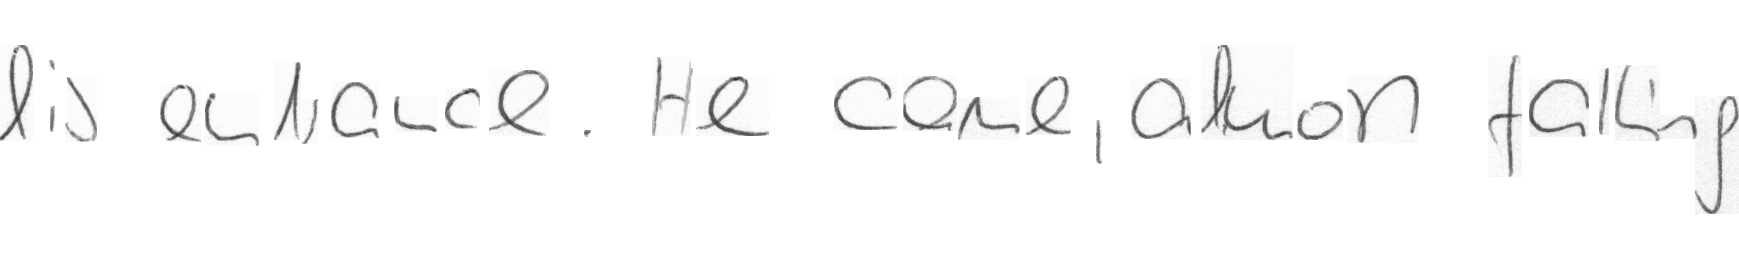 his entrance. He came, almost falling